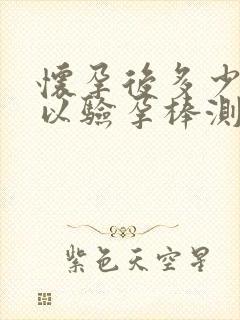 懷孕後多少
以驗孕棒測
紫色天空星